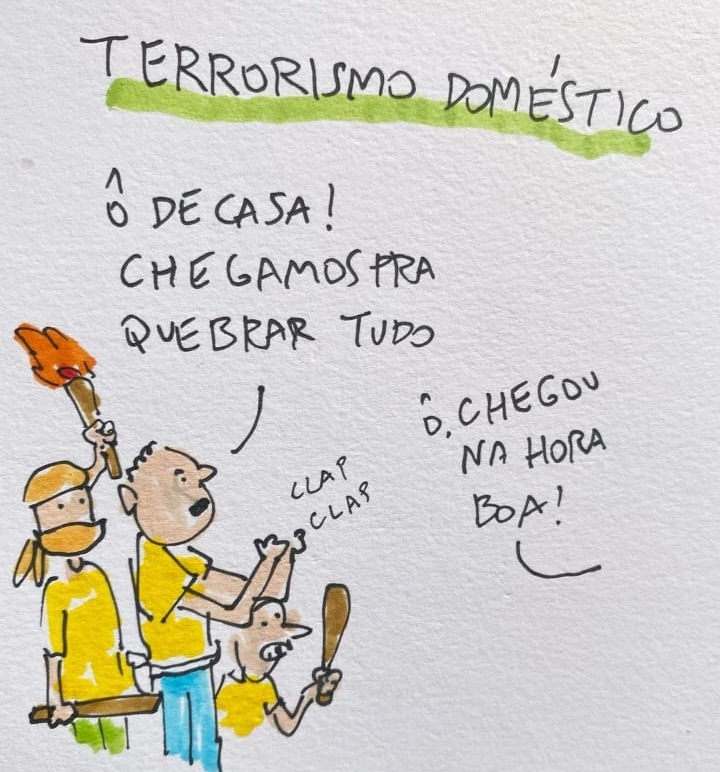 TERRORISMO DOMÉSTICO
Ô DE CASA!
CHEGAMOS PRA
QUEBRAR TUDO
CLAP
CLAP
Ô, CHEGOU
NA HORA
BOA!